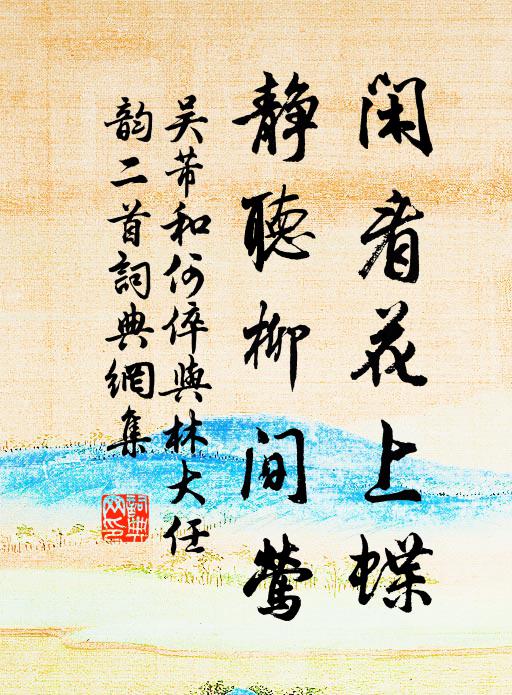 闲看花上蝶
静聽柳间鶯
吴芾和何倅與林大任
韵二首詞典網集
詞典